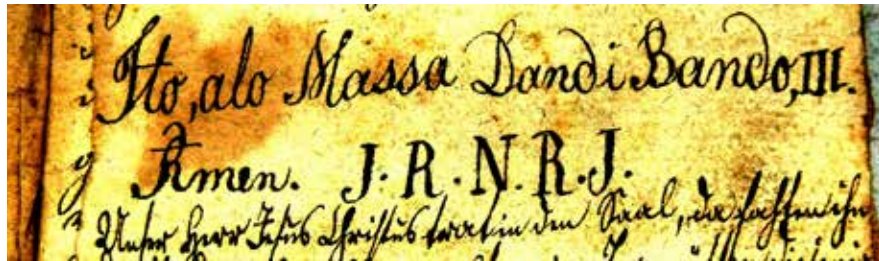 Ito, alo Massa Dandi Bando, III.
Amen. J. R. N. R. J.
Unser Herr Jesus Christus trat in den Saal, da sahen ihn